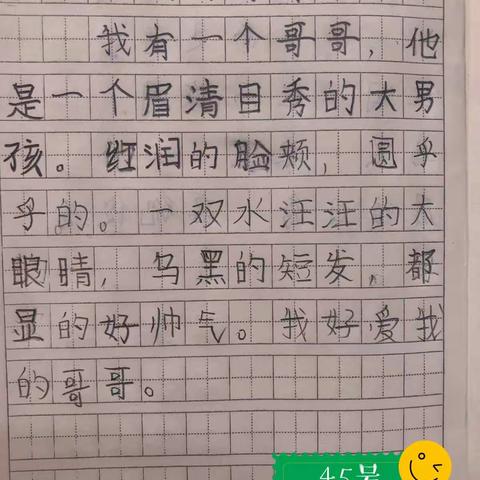 我有一个哥哥，他
是一个眉清目秀的大男
孩。红润的脸颊，圆乎
乎的。一双水汪汪的大
眼睛，乌黑的短发，都
显的好帅气。我好爱我
的哥哥。
45号